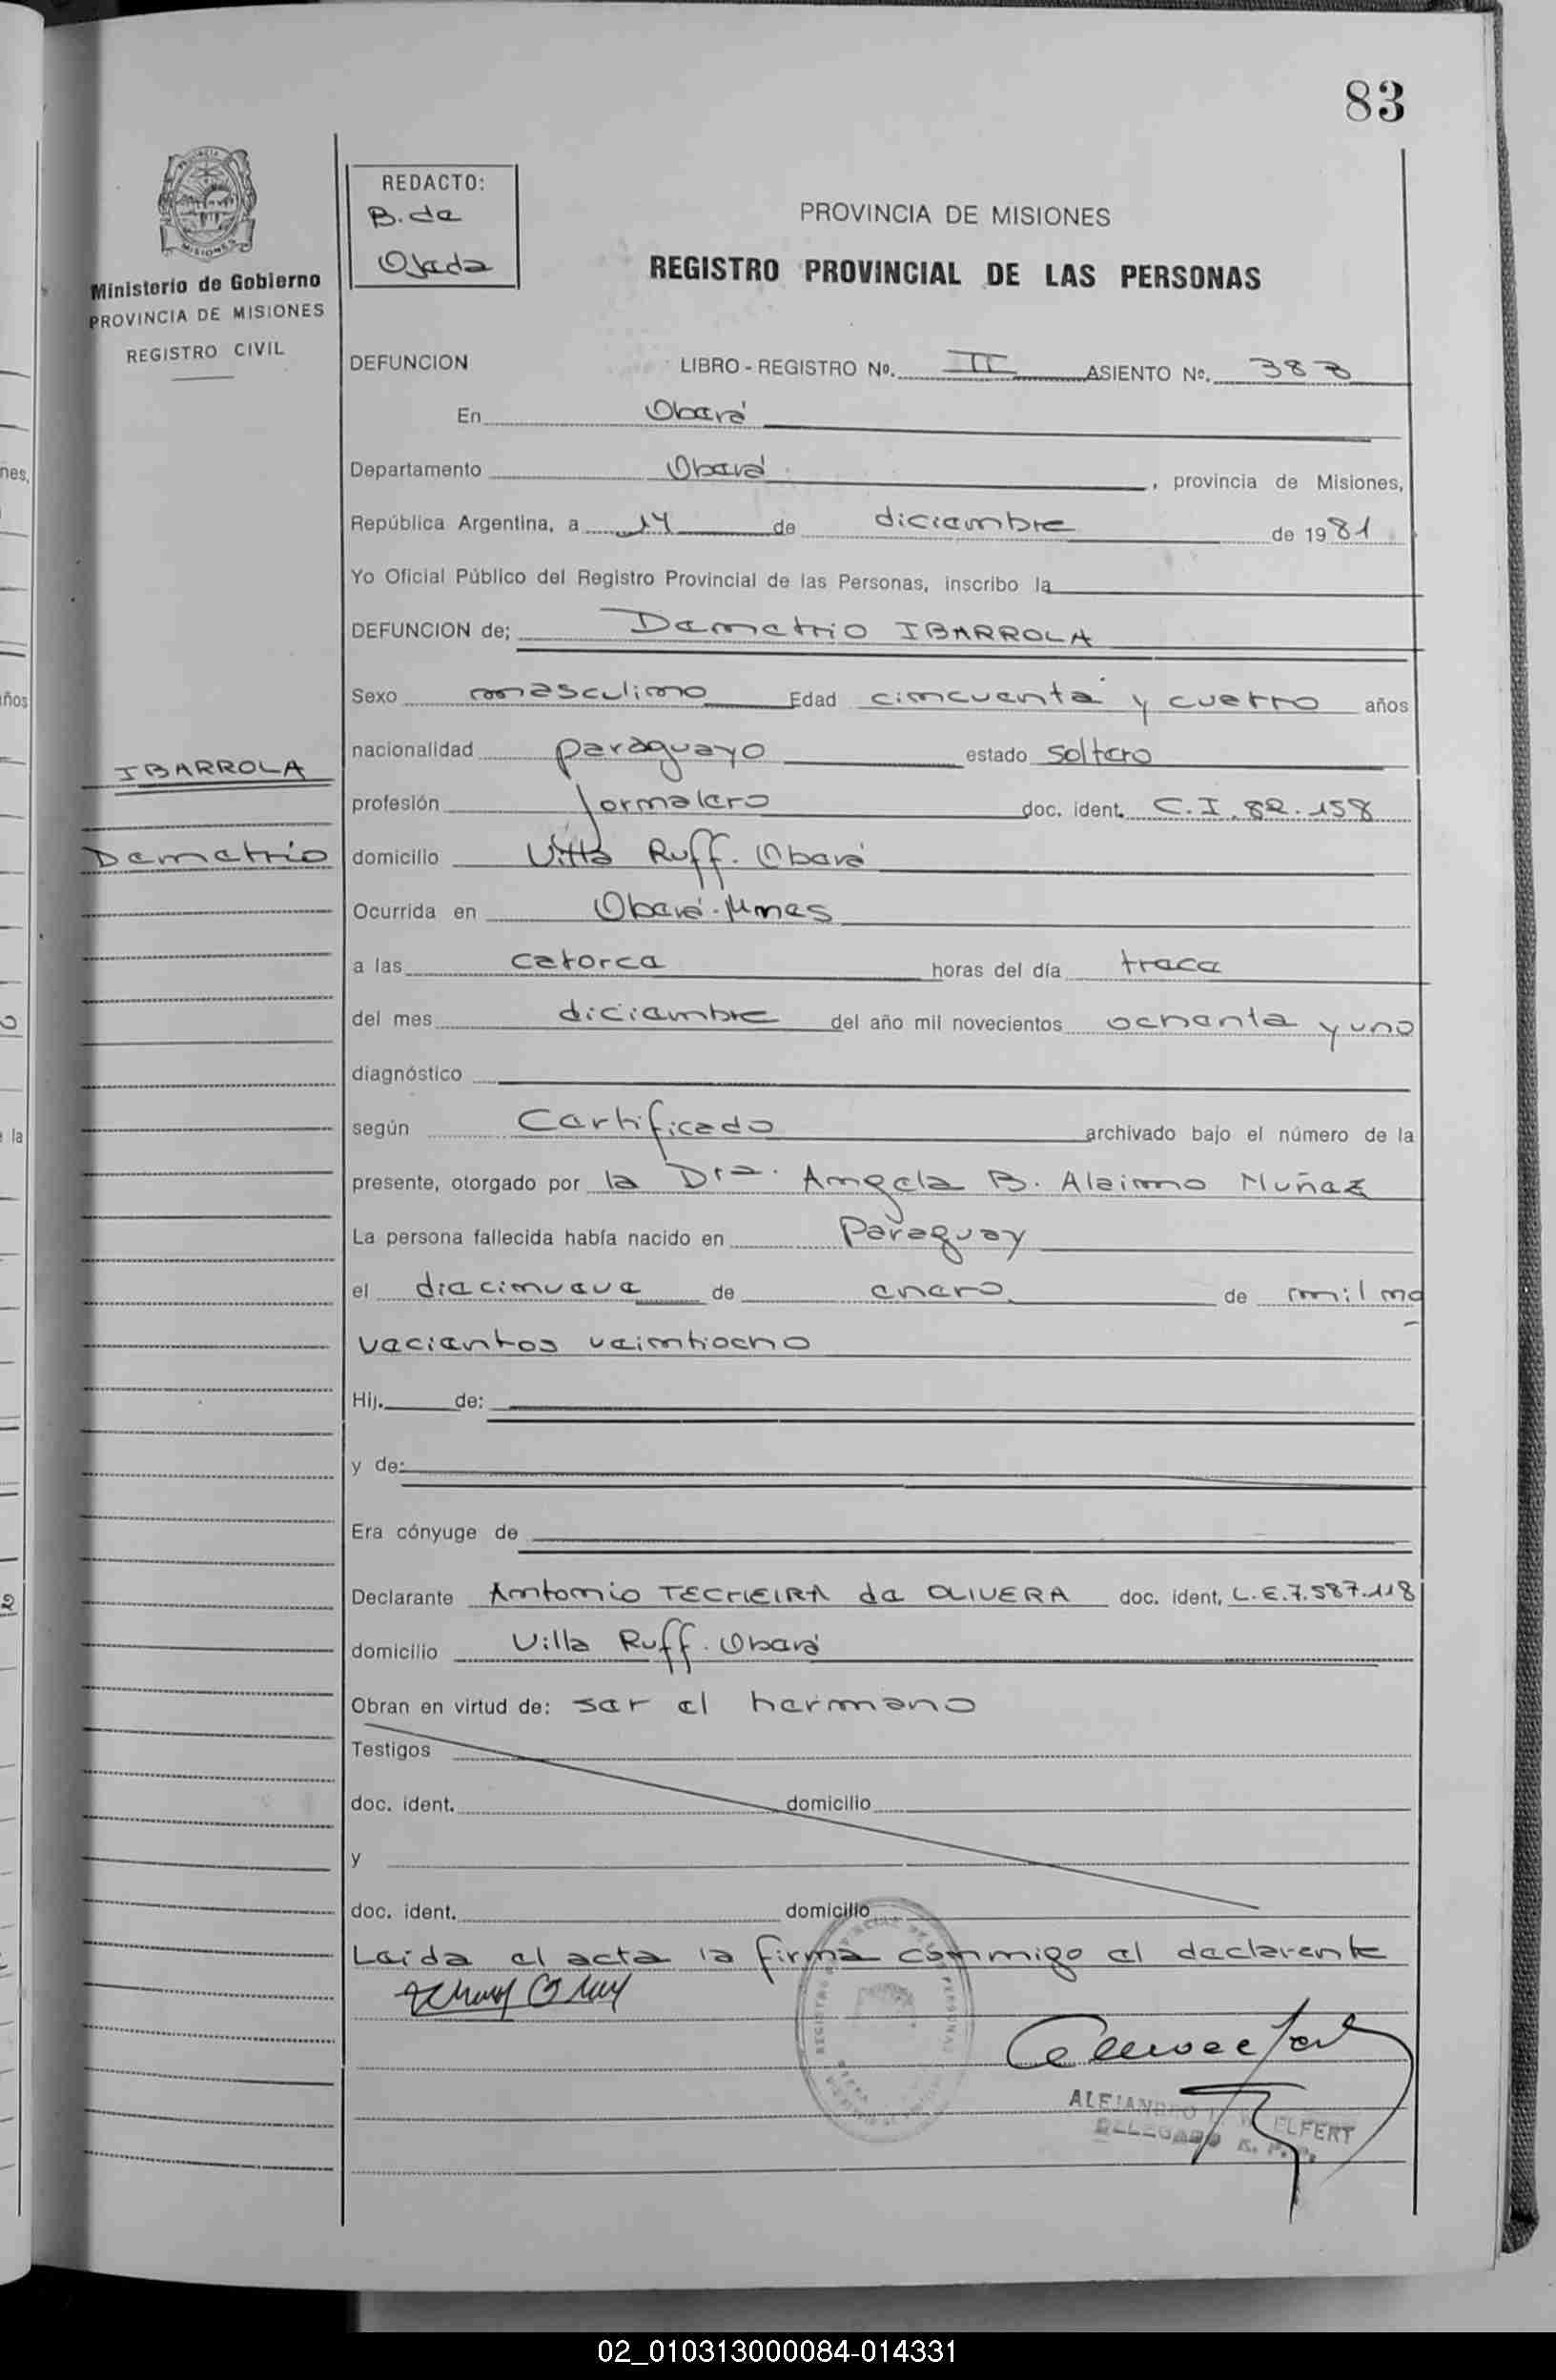 83
PROVINCIA
MISIONES
Ministerio de Gobierno
PROVINCIA DE MISIONES
REGISTRO CIVIL
REDACTO:
B. de
Ojeda
PROVINCIA DE MISIONES
REGISTRO PROVINCIAL DE LAS PERSONAS
DEFUNCION LIBRO - REGISTRO Nº. II ASIENTO Nº. 383
En Oberá
Departamento Oberá, provincia de Misiones,
República Argentina, a 14 de diciembre de 1981
Yo Oficial Público del Registro Provincial de las Personas, inscribo la
DEFUNCION de; Demetrio IBARROLA
Sexo masculino Edad cincuenta y cuatro años
nacionalidad paraguayo estado soltero
IBARROLA
profesión jornalero doc. ident. C.I. 82.158
Demetrio
domicilio Villa Ruff. Oberá
Ocurrida en Oberá-Mnes
a las catorce horas del día trece
del mes diciembre del año mil novecientos ochenta y uno
diagnóstico
según Certificado archivado bajo el número de la
presente, otorgado por la Dra. Angela B. Alaimo Muñoz
La persona fallecida había nacido en Paraguay
el diecinueve de enero de mil no
vecientos veintiocho
Hij. de:
y de:
Era cónyuge de
Declarante Antonio TECHEIRA de OLIVERA doc. ident. L.E.7.587.118
domicilio Villa Ruff. Oberá
Obran en virtud de: ser el hermano
Testigos
doc. ident. domicilio
y
doc. ident. domicilio
Leida el acta la firma conmigo el declarante
ALEJANDRO ELFERT
DELEGADO R. P. P.
02_010313000084-014331